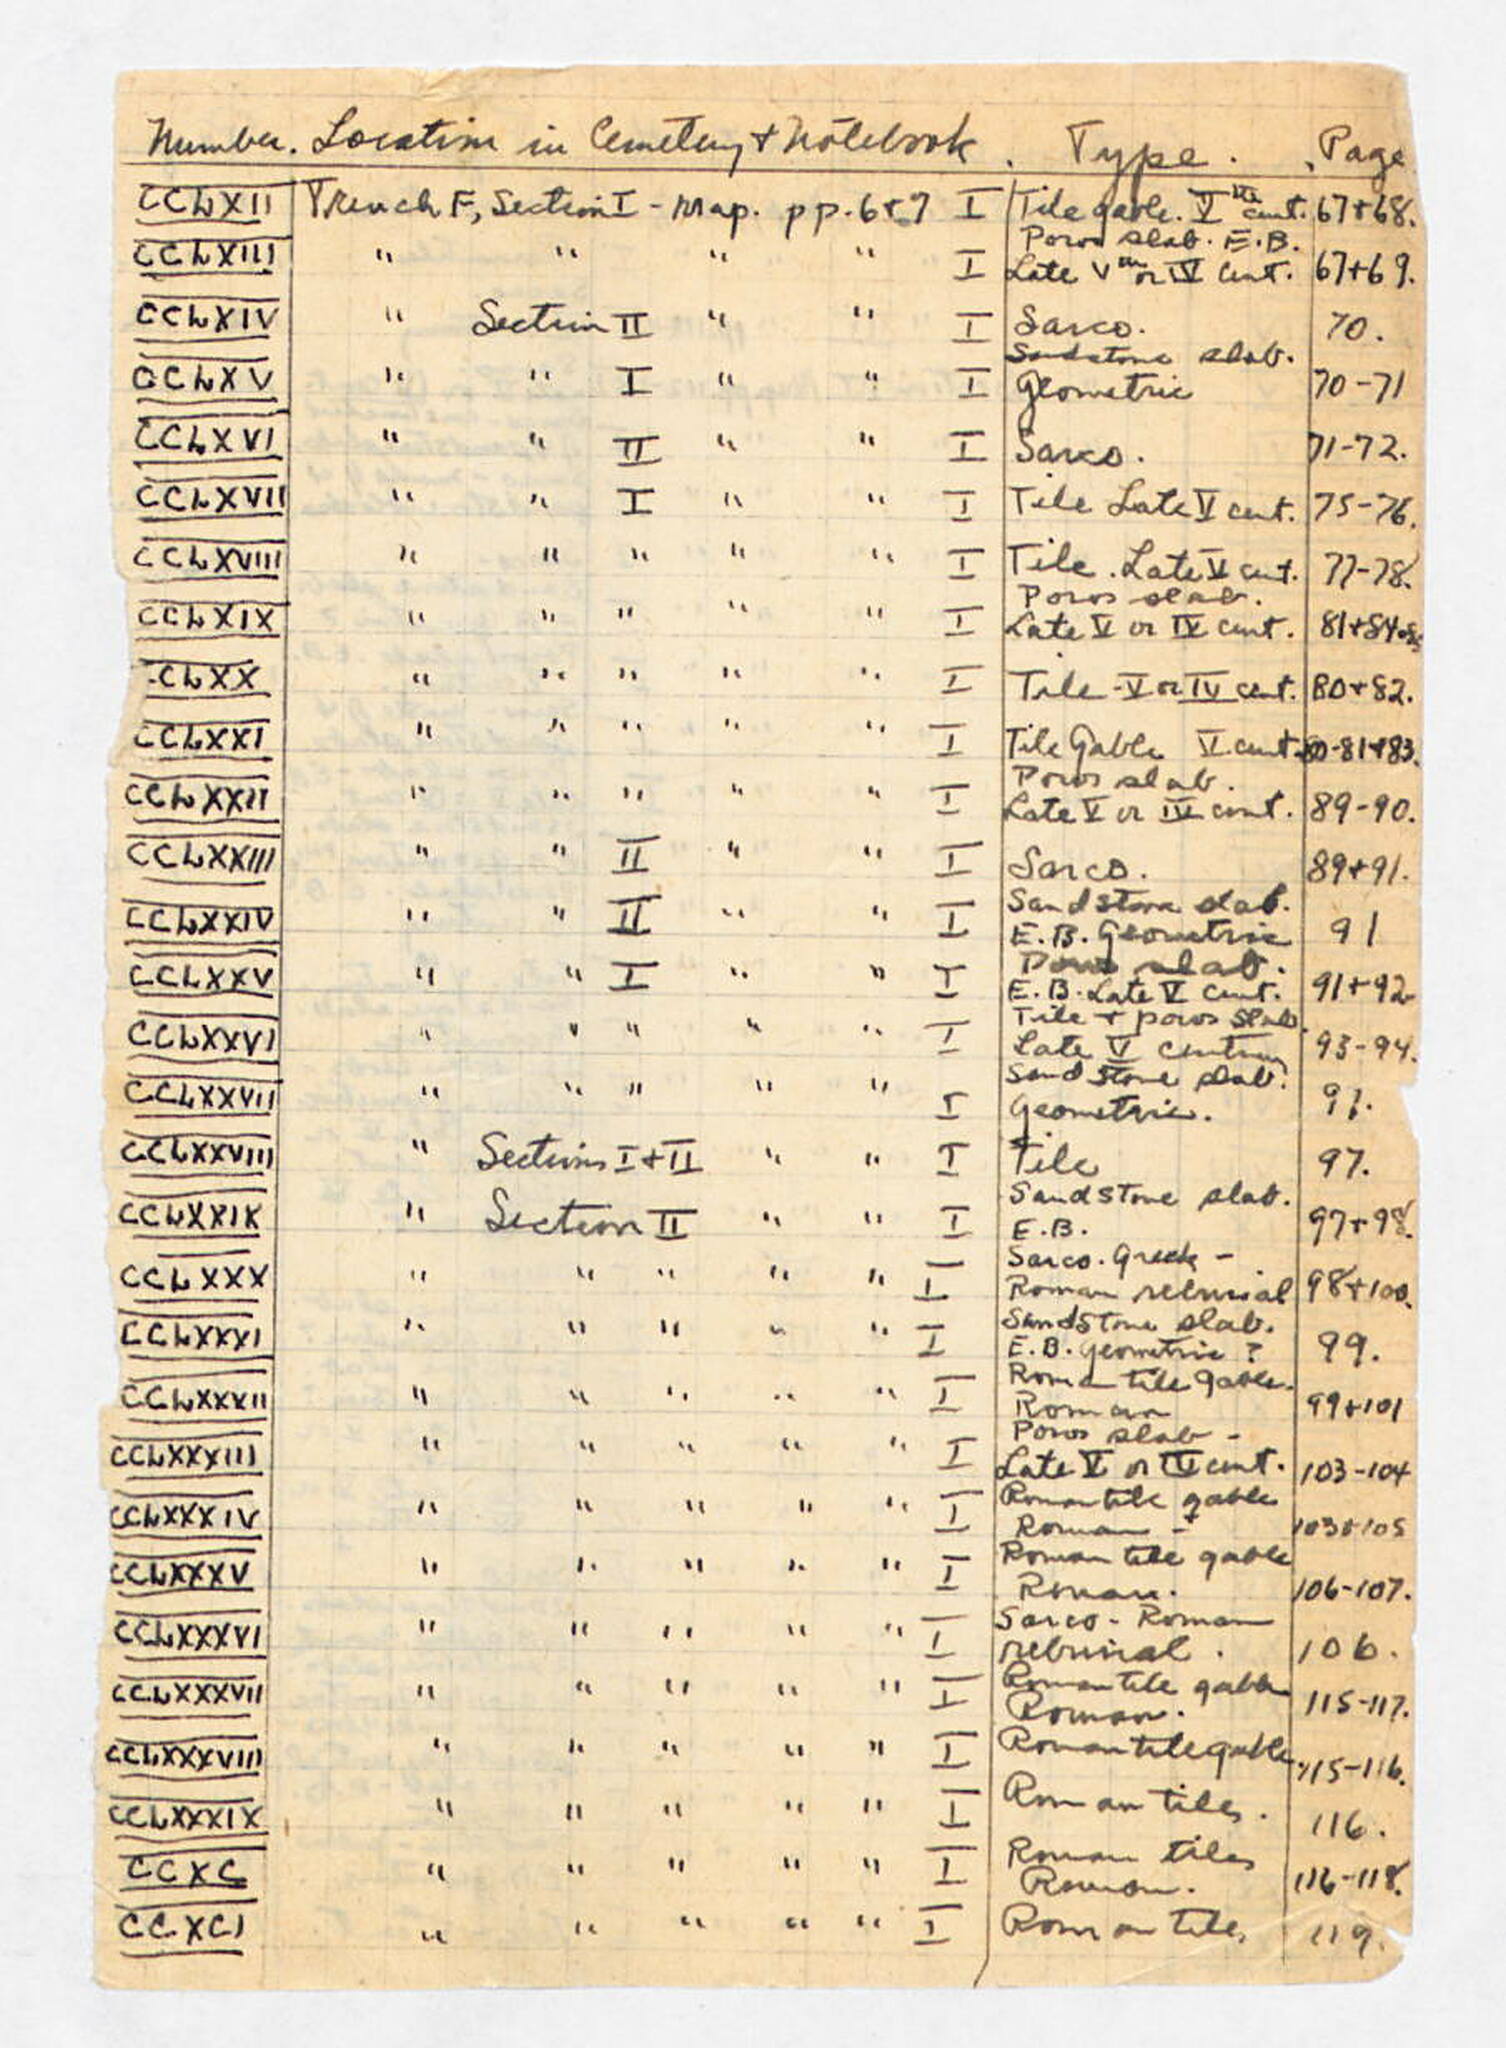 Number. Location in Cemetery + Notebook. Type. Page
CCLXII Trench F, Section I - Map. pp. 6+7 I Tile gable. Vth cent. 67+68.
Poros slab. E.B.
CCLXIII " " " " I Late Vth or IV cent. 67+69.
CCLXIV " Section II " " I Sarco. 70.
Sandstone slab.
CCLXV " " I " " I Geometric 70-71
CCLXVI " " II " " I Sarco. 71-72.
CCLXVII " " I " " I Tile Late V cent. 75-76.
CCLXVIII " " " " " I Tile. Late V cent. 77-78.
Poros slab.
CCLXIX " " " " " I Late V or IV cent. 81+84-85
CCLXX " " " " " I Tile - V or IV cent. 80+82.
CCLXXI " " " " " I Tile Gable V cent. 80-81+83.
Poros slab.
CCLXXII " " " " " I Late V or IV cent. 89-90.
CCLXXIII " " II " " I Sarco. 89+91.
Sandstone slab.
CCLXXIV " " II " " I E.B. Geometric 91
Poros slab.
CCLXXV " " I " " I E.B. Late V cent. 91+92
Tile + poros slab.
CCLXXVI " " " " " I Late V century 93-94.
Sandstone slab.
CCLXXVII " " " " " I Geometric. 91.
CCLXXVIII " Sections I+II " " I Tile 97.
Sandstone slab.
CCLXXIX " Section II " " I E.B. 97+98.
Sarco. Greek -
CCLXXX " " " " " I Roman reburial 98+100.
Sandstone slab.
CCLXXXI " " " " " I E.B. Geometric? 99.
Roman tile gable.
CCLXXXII " " " " " I Roman 99+101
Poros slab -
CCLXXXIII " " " " " I Late V or IV cent. 103-104
Roman tile gable
CCLXXXIV " " " " " I Roman - 103+105
Roman tile gable
CCLXXXV " " " " " I Roman. 106-107.
Sarco - Roman
CCLXXXVI " " " " " I reburial. 106.
Roman tile gable
CCLXXXVII " " " " " I Roman. 115-117.
CCLXXXVIII " " " " " I Roman tile gable. 115-116.
CCLXXXIX " " " " " I Roman tiles. 116.
Roman tiles
CCXC " " " " " I Roman. 116-118.
CCXCI " " " " " I Roman tiles 119.